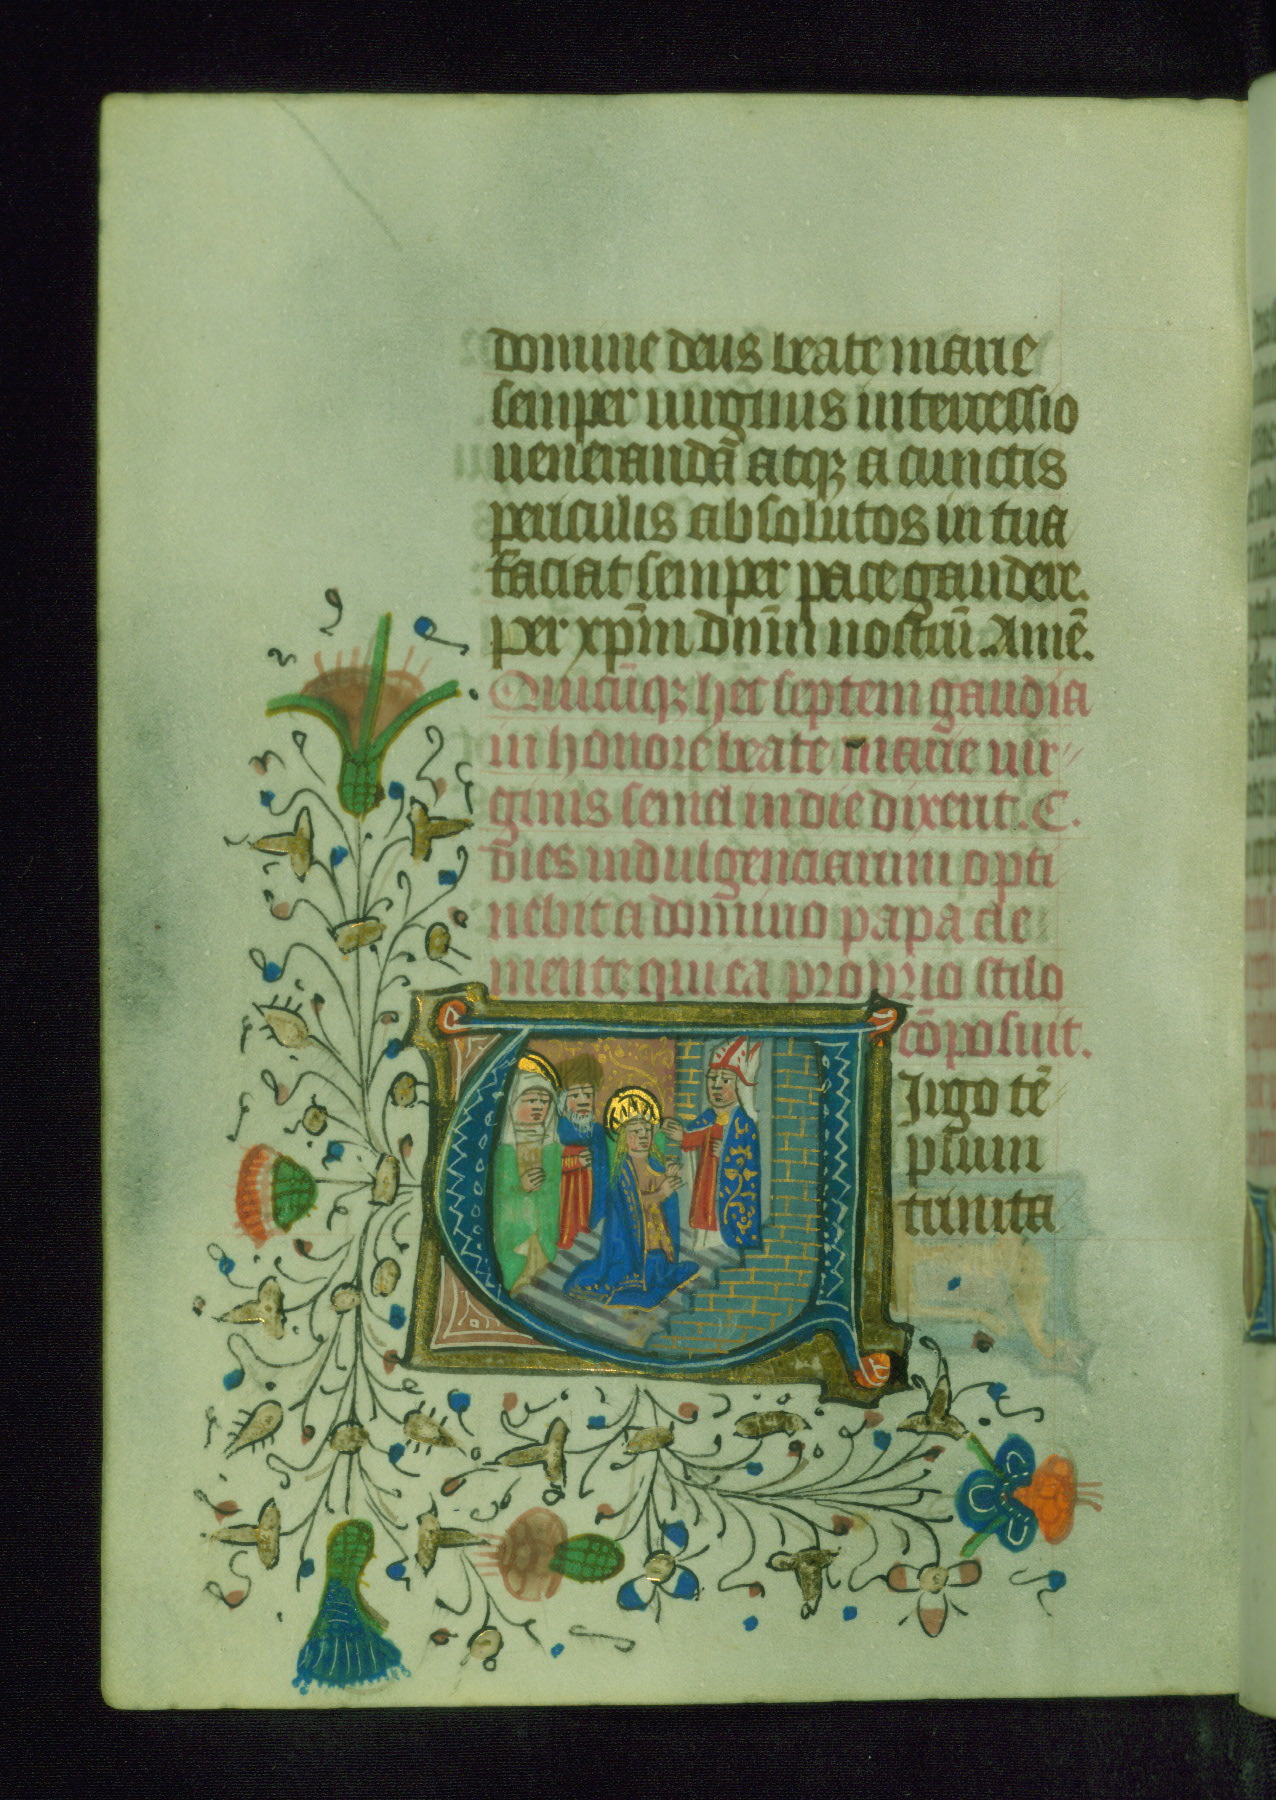 domine deus beate marie
semper uirginis intercessio
ueneranda atqꝫ a cunctis
periculis absolutos in tua
faciat semper pace gaudere.
per xp̄m dn̄m nostrū. Amē.
Quicūqꝫ hec septem gaudia
in honore beate marie uir
ginis semel in die dixerit. C.
dies indulgenciarum opti
nebit a domino papa cle
mente qui ea proprio stilo
cōposuit.
Uirgo tē
plum
trinita